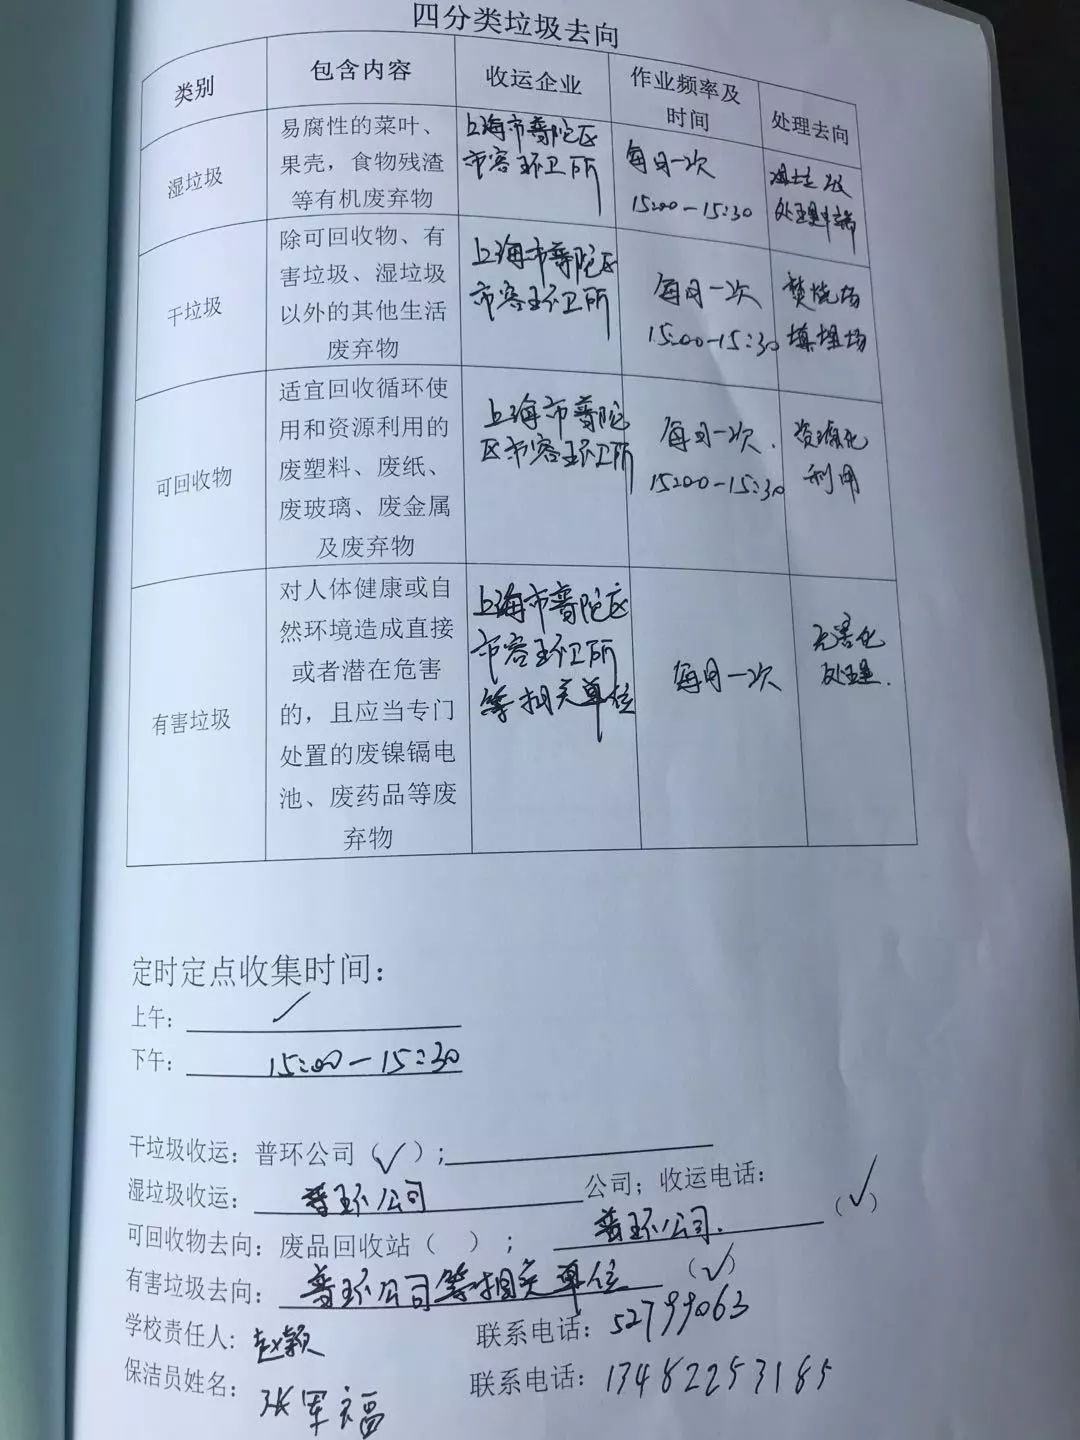 四分类垃圾去向
类别
包含内容
收运企业
作业频率及
时间
处理去向
湿垃圾
易腐性的菜叶、
果壳，食物残渣
等有机废弃物
上海市普陀区
市容环卫所
每日一次
15:00－15:30
湿垃圾
处理末端
干垃圾
除可回收物、有
害垃圾、湿垃圾
以外的其他生活
废弃物
上海市普陀区
市容环卫所
每日一次
15:00－15:30
焚烧场
填埋场
可回收物
适宜回收循环使
用和资源利用的
废塑料、废纸、
废玻璃、废金属
及废弃物
上海市普陀
区市容环卫所
每日一次.
15:00－15:30
资源化
利用
有害垃圾
对人体健康或自
然环境造成直接
或者潜在危害
的，且应当专门
处置的废镍镉电
池、废药品等废
弃物
上海市普陀区
市容环卫所
等相关单位
每月一次
无害化
处理.
定时定点收集时间：
上午：
下午： 15:00－15:30
干垃圾收运：普环公司（✓）；
湿垃圾收运： 普环公司 公司；收运电话：
可回收物去向：废品回收站（ ）； 普环公司. （✓）
有害垃圾去向： 普环公司等相关单位 （✓）
学校责任人：赵颖 联系电话：52799063
保洁员姓名：张军福 联系电话：13482253185